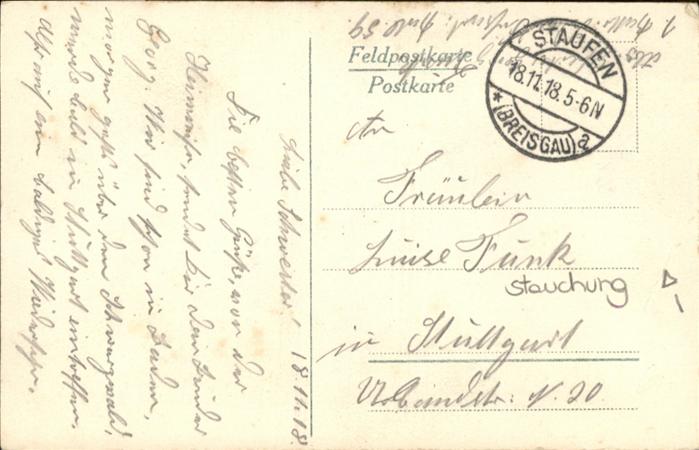 Feldpostkarte
Postkarte
STAUFEN
18.11.18.5-6N
* (BREISGAU) a
An
Fräulein
Luise Funk
stauchung
in Stuttgart
Urbanstr. N. 20
18.11.18.
Liebe Schwester!
Die besten Grüße, von der
Heimreise, sendet Dir Dein Bruder
Georg. Wir sind schon in Baden,
morgen geht's über den Schwarzwald,
bald in Stuttgart eintreffen.
Also auf ein baldiges Wiedersehn.